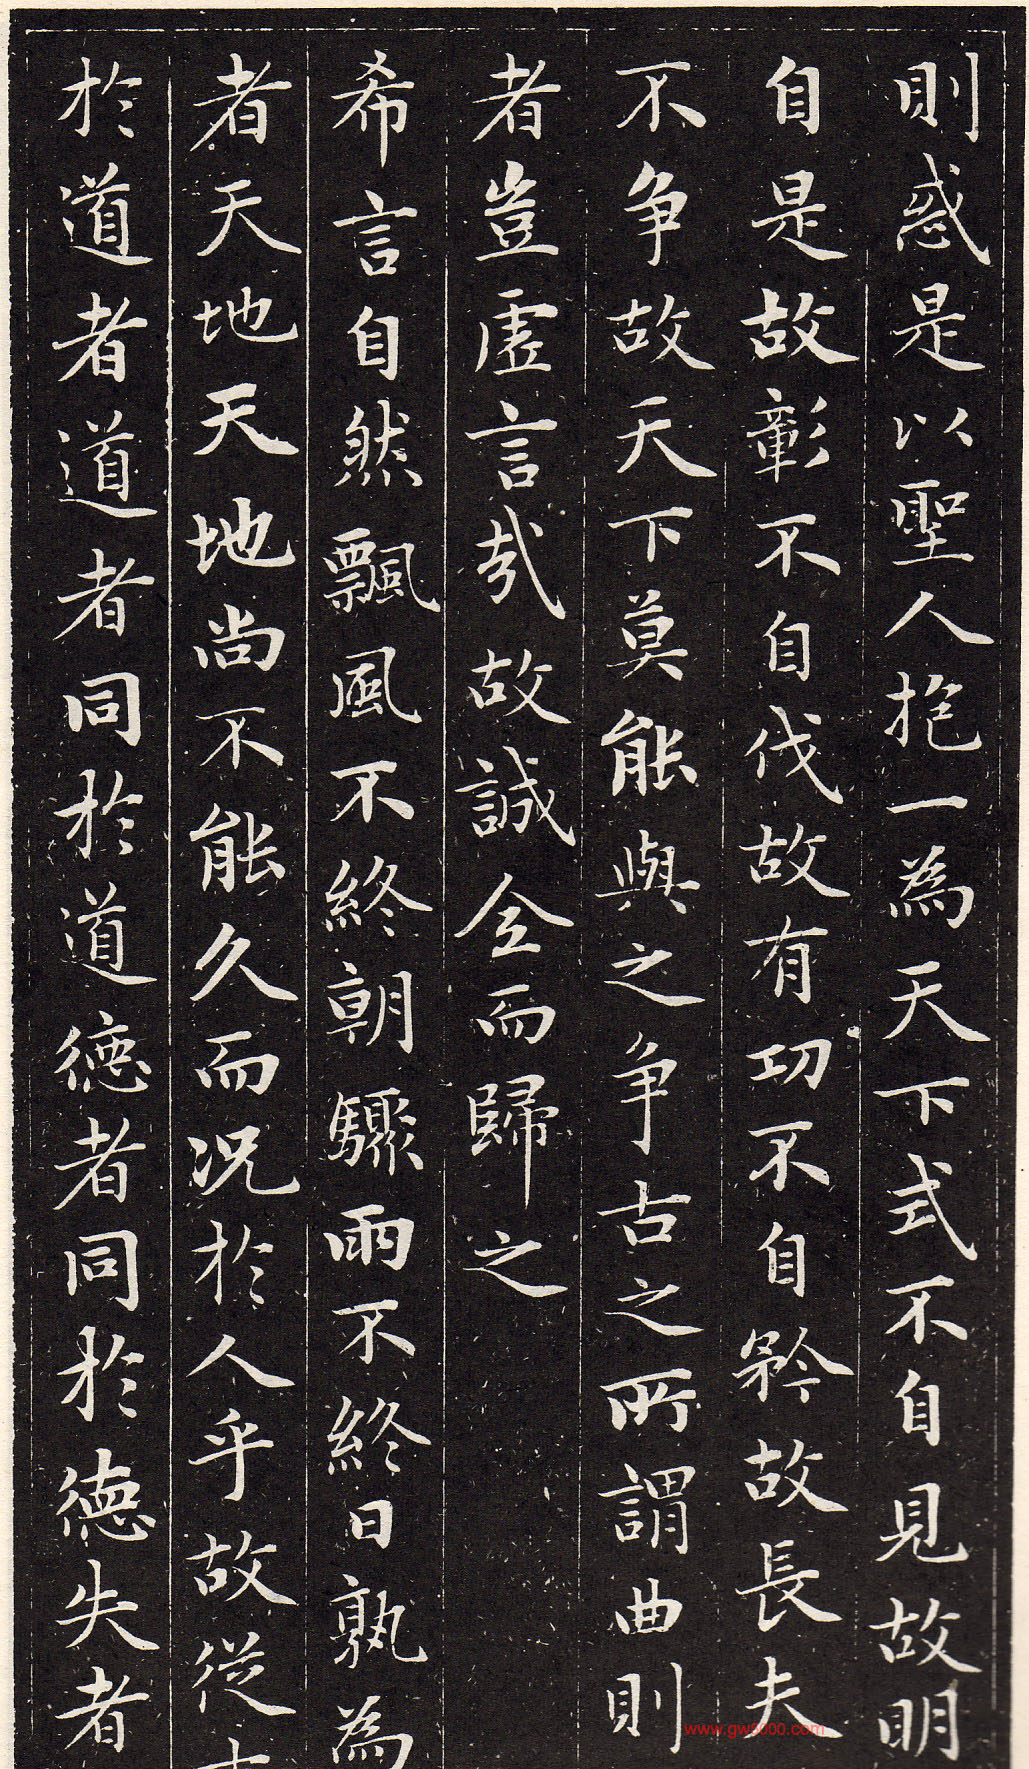 則惑是以聖人抱一為天下式不自見故明
自是故彰不自伐故有功不自矜故長夫
不争故天下莫能與之争古之所謂曲則
者豈虛言哉故誠全而歸之
希言自然飄風不終朝驟雨不終日孰為
者天地天地尚不能久而況於人乎故從
於道者道者同於道德者同於德失者
www.gw5000.com